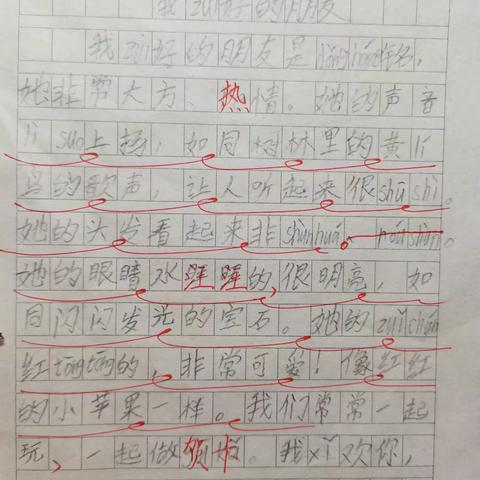 我zuì好的朋友
我zuì好的朋友是
她非常大方、热情。她的声音
上扬，如同树林里的黄lí
鸟的歌声，让人听起来很shūshì。
她的头发看起来非shùnhuá、
她的眼睛水哇哇的，很明亮，如
同闪闪发光的宝石。她的zuǐchún
红tōngtōng的，非常可爱！像红红
的小苹果一样。我们常常一起
玩、一起做。我xǐ欢你，